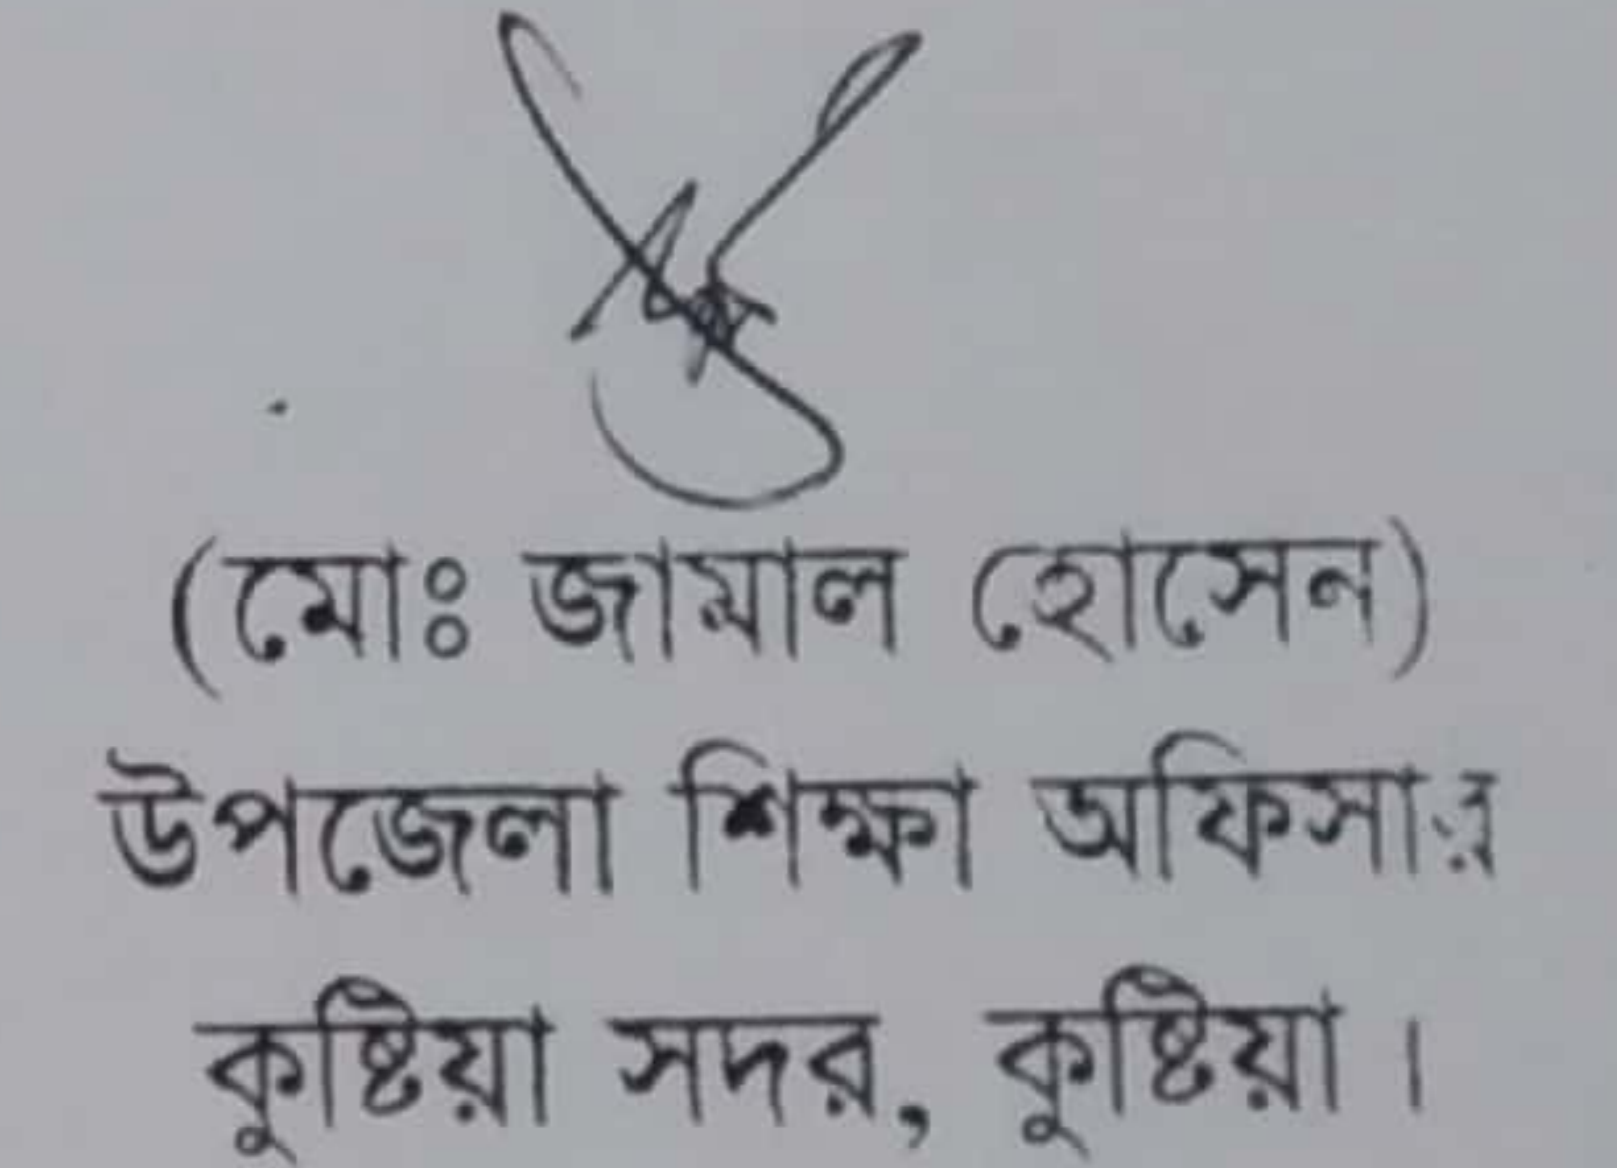 (মোঃ জামাল হোসেন)
উপজেলা শিক্ষা অফিসার
কুষ্টিয়া সদর, কুষ্টিয়া।